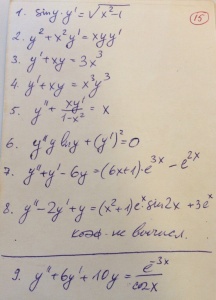 15
1. sin y · y' = √(x²-1)
2. y² + x²y' = xyy'
3. y' + xy = 3x³
4. y' + xy = x³y³
5. y'' + xy'/(1-x²) = x
6. y''y ln y + (y')² = 0
7. y'' + y' - 6y = (6x+1)·e³ˣ - e²ˣ
8. y'' - 2y' + y = (x²+1)eˣ sin2x + 3eˣ
коэф. не вычисл.
9. y'' + 6y' + 10y = e⁻³ˣ/cos2x